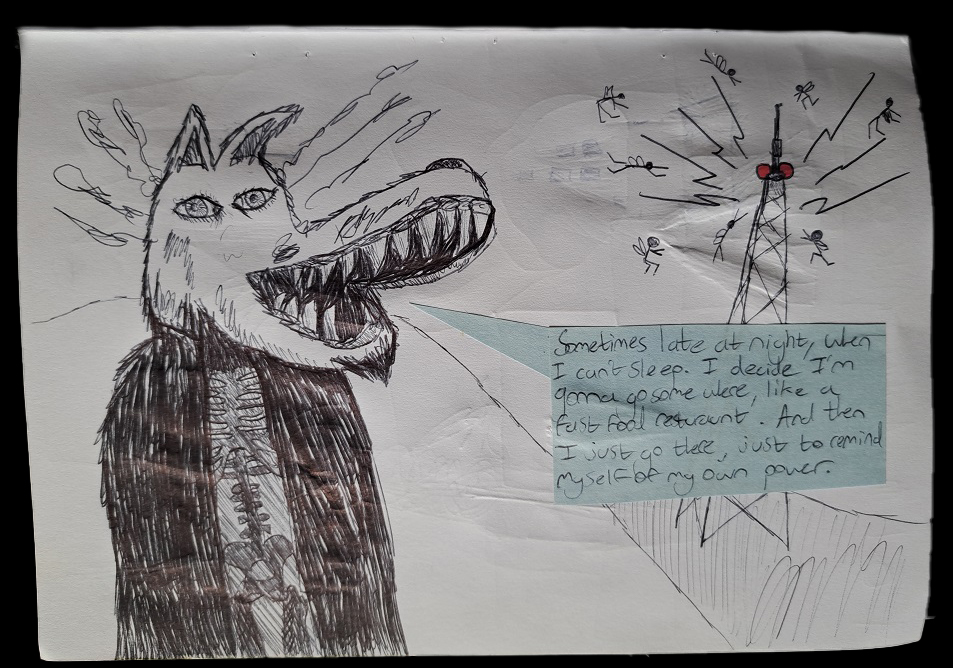 Sometimes late at night, when
I can't sleep. I decide I'm
gonna go some were, like a
fast food returaunt. And then
I just go there, just to remind
myself of my own power.